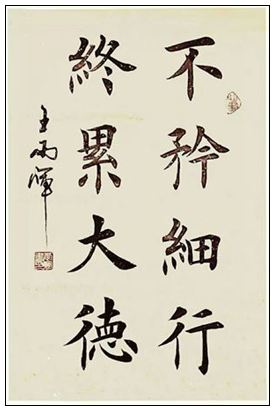 不矜細行
終累大德
王雨暉